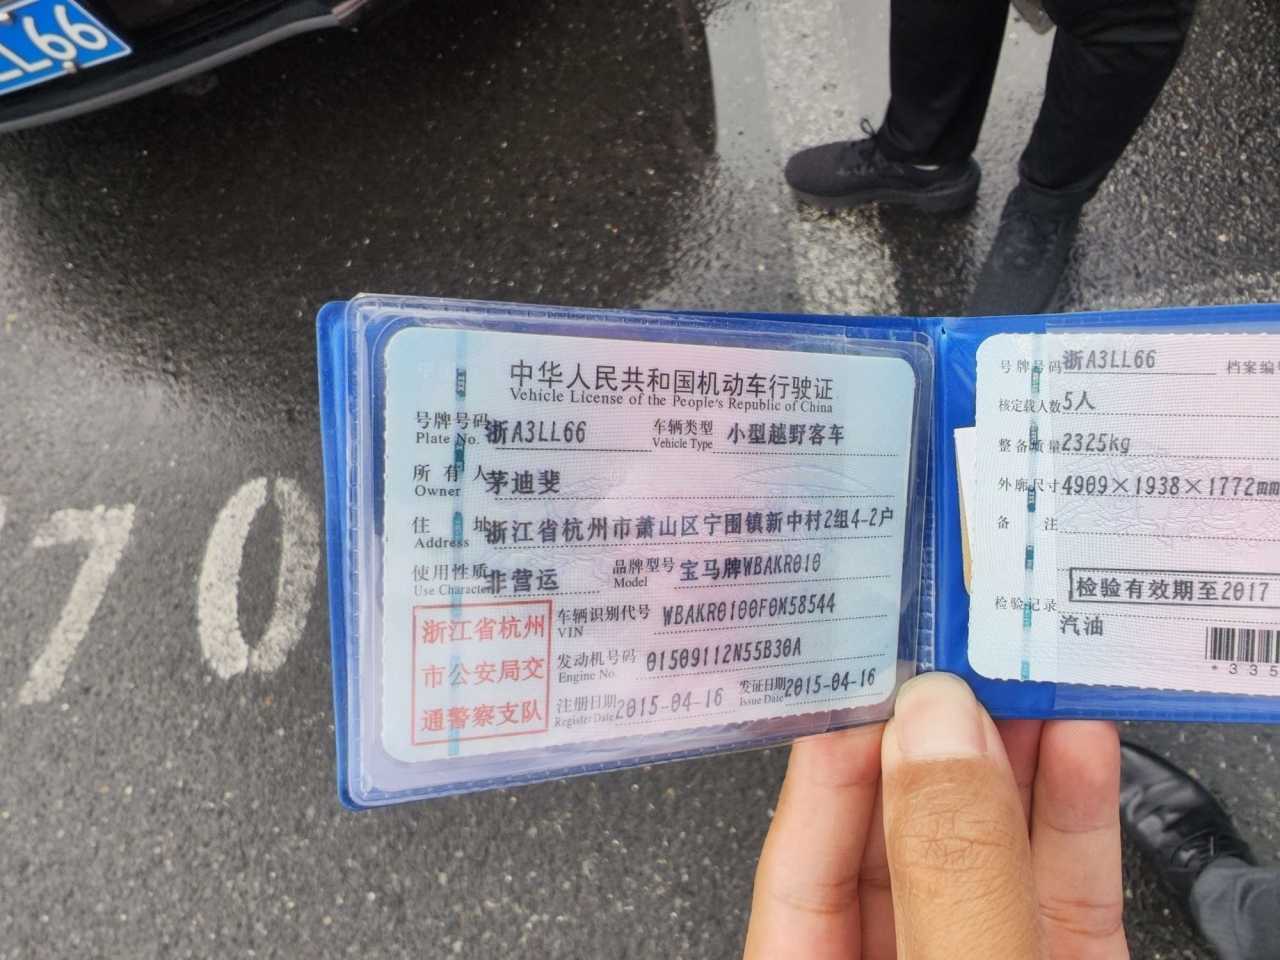 LL66
70
中华人民共和国机动车行驶证
Vehicle License of the People's Republic of China
号牌号码 浙A3LL66 车辆类型 小型越野客车
Plate No. Vehicle Type
所有人 茅迪斐
Owner
住址 浙江省杭州市萧山区宁围镇新中村2组4-2户
Address
使用性质 非营运 品牌型号 宝马牌WBAKR010
Use Character Model
浙江省杭州
市公安局交
通警察支队
车辆识别代号 WBAKR0100F0M58544
VIN
发动机号码 01509112N55B30A
Engine No.
注册日期 2015-04-16 发证日期 2015-04-16
Register Date Issue Date
号牌号码 浙A3LL66 档案编号
核定载人数 5人
整备质量 2325kg
外廓尺寸 4909×1938×1772mm
备注
检验有效期至2017
检验记录
汽油
*335